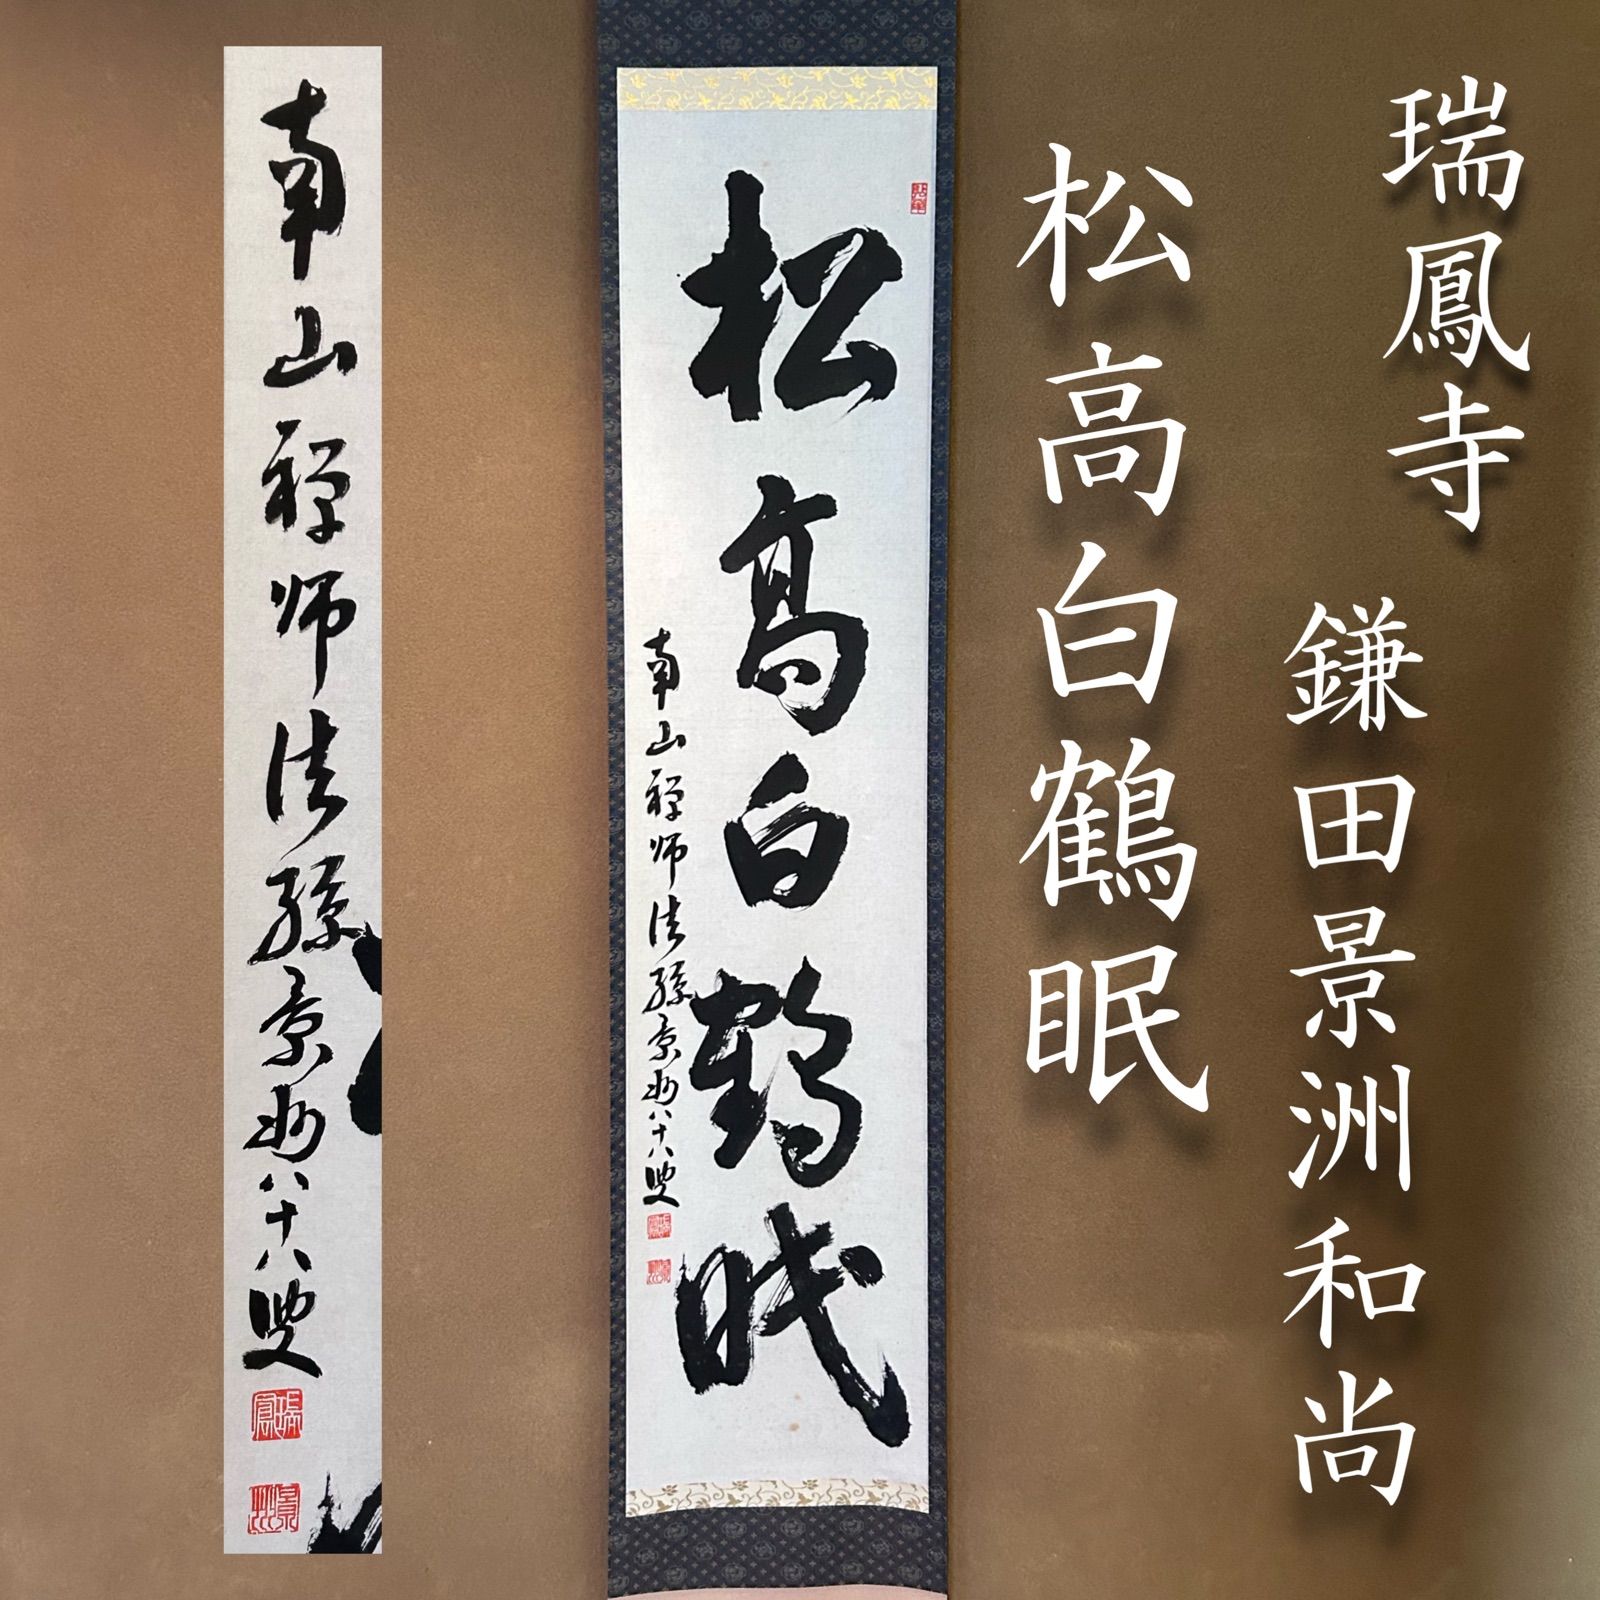 瑞鳳寺
鎌田景洲和尚
松高白鶴眠
松高白鶴眠
南山禅师法孫景州八十八叟
南山禅师法孫景州八十八叟
瑞鳳